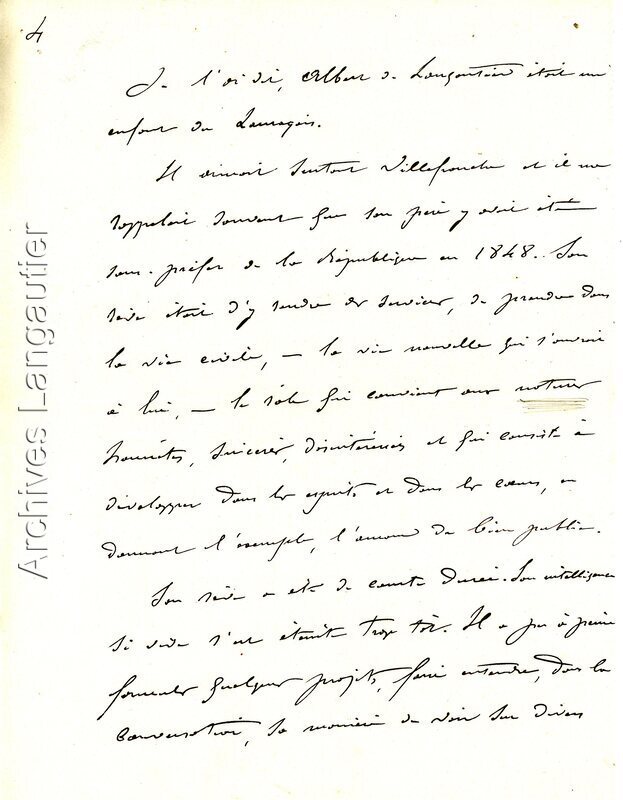 4
Je l'ai dit, Albert de Langautier était un
enfant du Lauragais.
Il aimait surtout Villefranche et il me
rappelait souvent que son père y avait été
sous-préfet de la République en 1848. Son
rêve était d'y rendre des services, de prendre dans
la vie civile, — la vie nouvelle qui s'ouvrait
à lui, — le rôle qui convient aux natures
honnêtes, sincères, désintéressées et qui consiste à
développer dans les esprits et dans les cœurs, en
donnant l'exemple, l'amour du bien public.
Son rêve a été de courte durée. Son intelligence
si vive s'est éteinte trop tôt. Il a pu à peine
formuler quelques projets, faire entendre, dans la
conversation, sa manière de voir sur divers
Archives Langautier